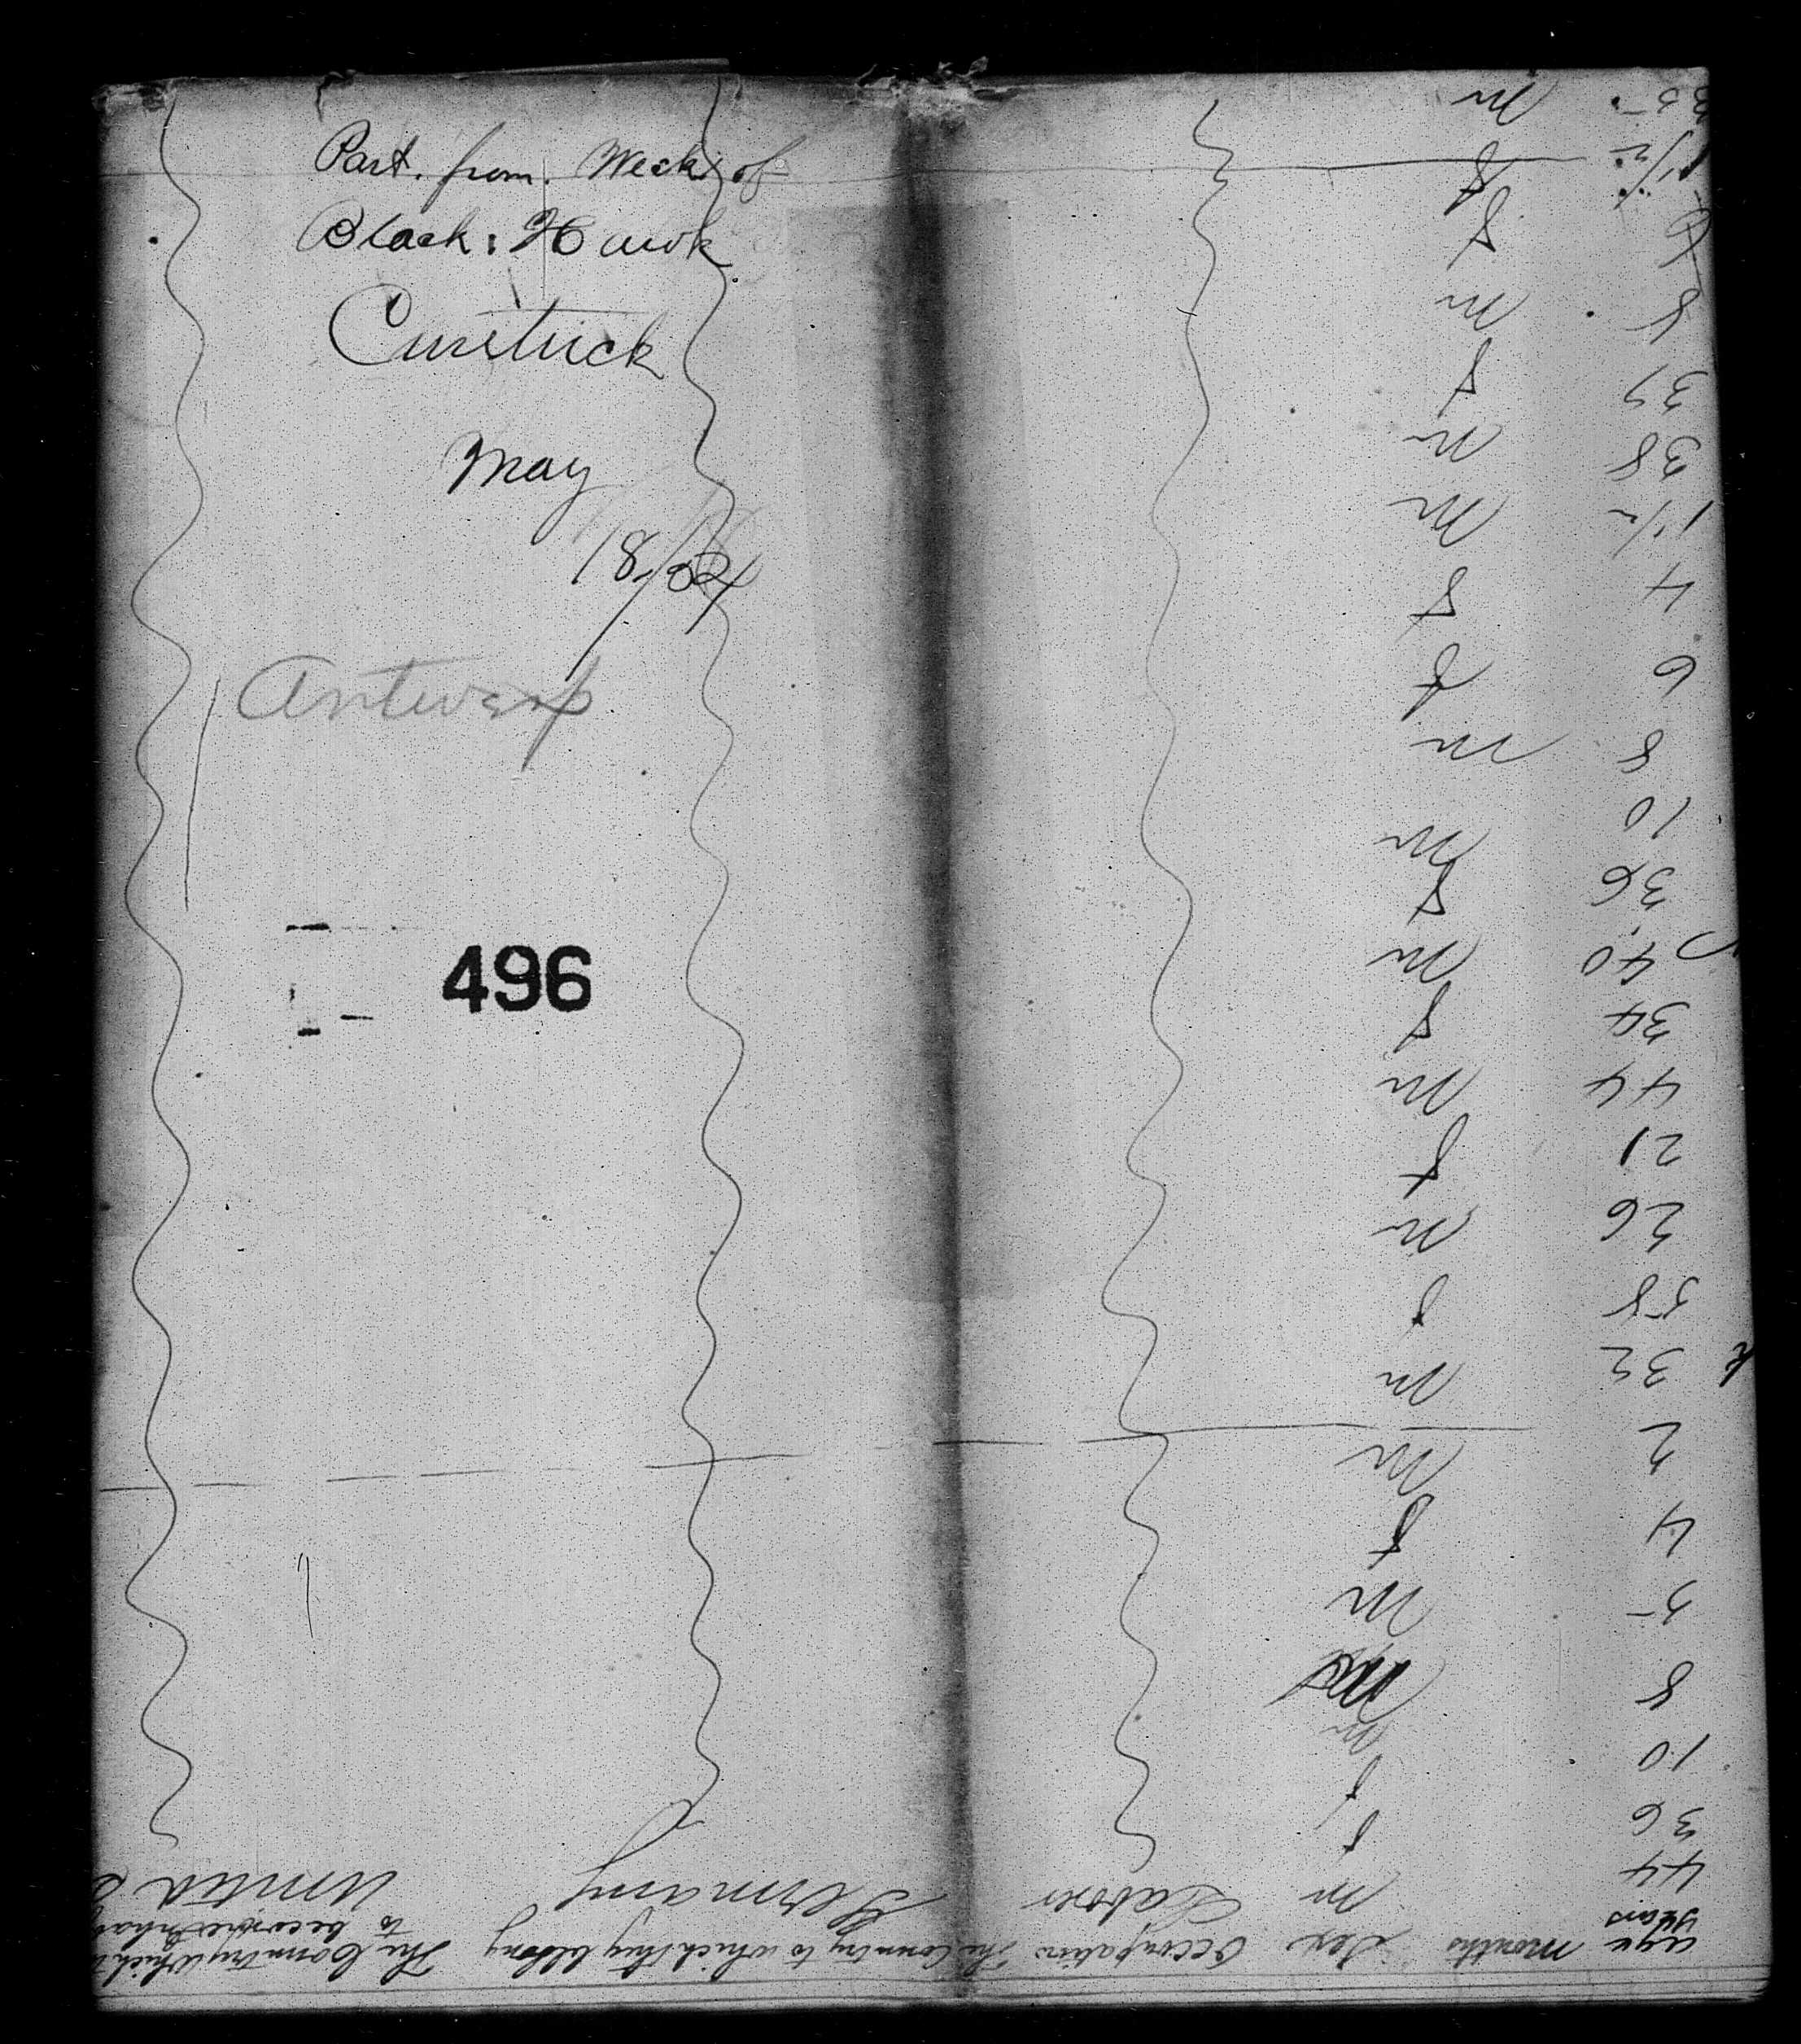 Part. from. Weck: of
Black: Hawk
May
18/54
Antwerp
496
age months Sex Occupation The Country to which they belong The Country which
Years to become Inhab
44 m Laborer Germany United S
36 f
10 f
8 m
5 m
4 f
2 m
32 m
58 f
26 m
21 f
44 m
34 f
40 m
36 f
10 m
8 m
6 f
4 f
1 1/2 m
38 m
37 f
8 m
6 f
1 1/2 f
35 m